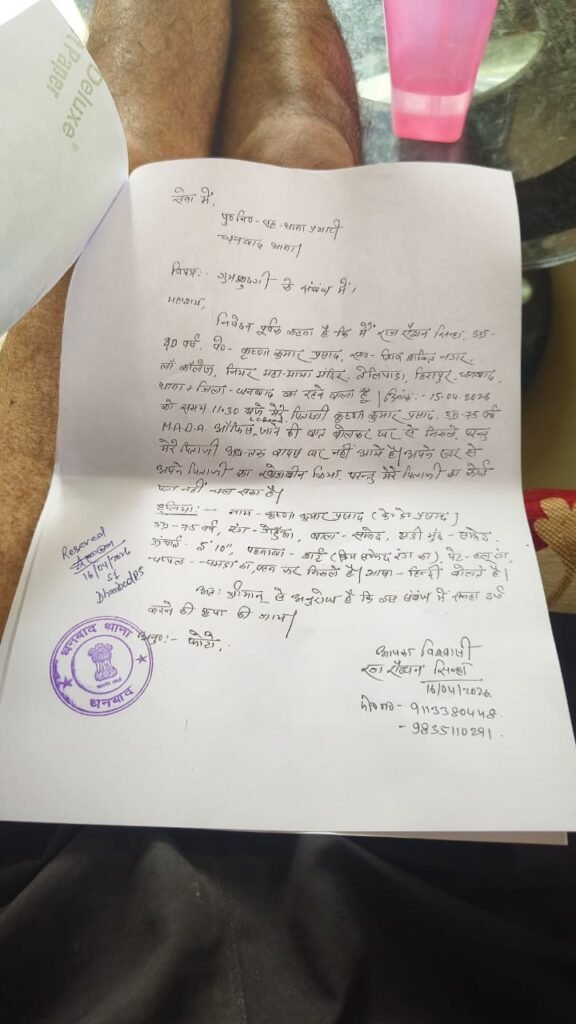 Deluxe
Paper
सेवा में,
थाना प्रभारी
धनबाद थाना।
विषय:- गुमशुदगी के संबंध में।
महाशय,
निवेदन पूर्वक कहना है कि मैं राज रौशन सिन्हा, उम्र-
40 वर्ष, पे०- कृष्णा कुमार प्रसाद, नगर,
लॉ कॉलेज, नियर महा माया मंदिर, तेलिपाड़ा, हिरापुर, धनबाद,
थाना + जिला - धनबाद का रहने वाला हूँ। दिनांक:- 15.04.2026
को समय 11:30 बजे मेरे पिताजी कृष्णा कुमार प्रसाद, उम्र-75 वर्ष
MADA ऑफिस जाने की बात बोलकर घर से निकले, परन्तु
मेरे पिताजी अब तक वापस घर नहीं आये हैं। अपने स्तर से
अपने पिताजी का खोजबीन किया, परन्तु मेरे पिताजी का कोई
पता नहीं चल सका है।
हुलिया:- नाम - कृष्णा कुमार प्रसाद (के० के० प्रसाद)
उम्र-75 वर्ष, रंग- गेहुँआ, बाल- सफेद, दाढ़ी मुंछ- सफेद
ऊंचाई- 5'10", पहनावा- शर्ट (सफेद रंग का), पेंट- रंग,
चप्पल - चमड़ा का, पहन कर निकले हैं। भाषा- हिन्दी बोलते हैं।
अतः श्रीमान् से अनुरोध है कि इस संबंध में सनहा दर्ज
करने की कृपा की जाय।
अनु०:- फोटो,
Received
16/04/2026
SI
Dhanbad PS
धनबाद थाना
धनबाद
आपका विश्वासी
राज रौशन सिन्हा
16/04/2026
मो० नं०- 9113380448
- 9835110291.